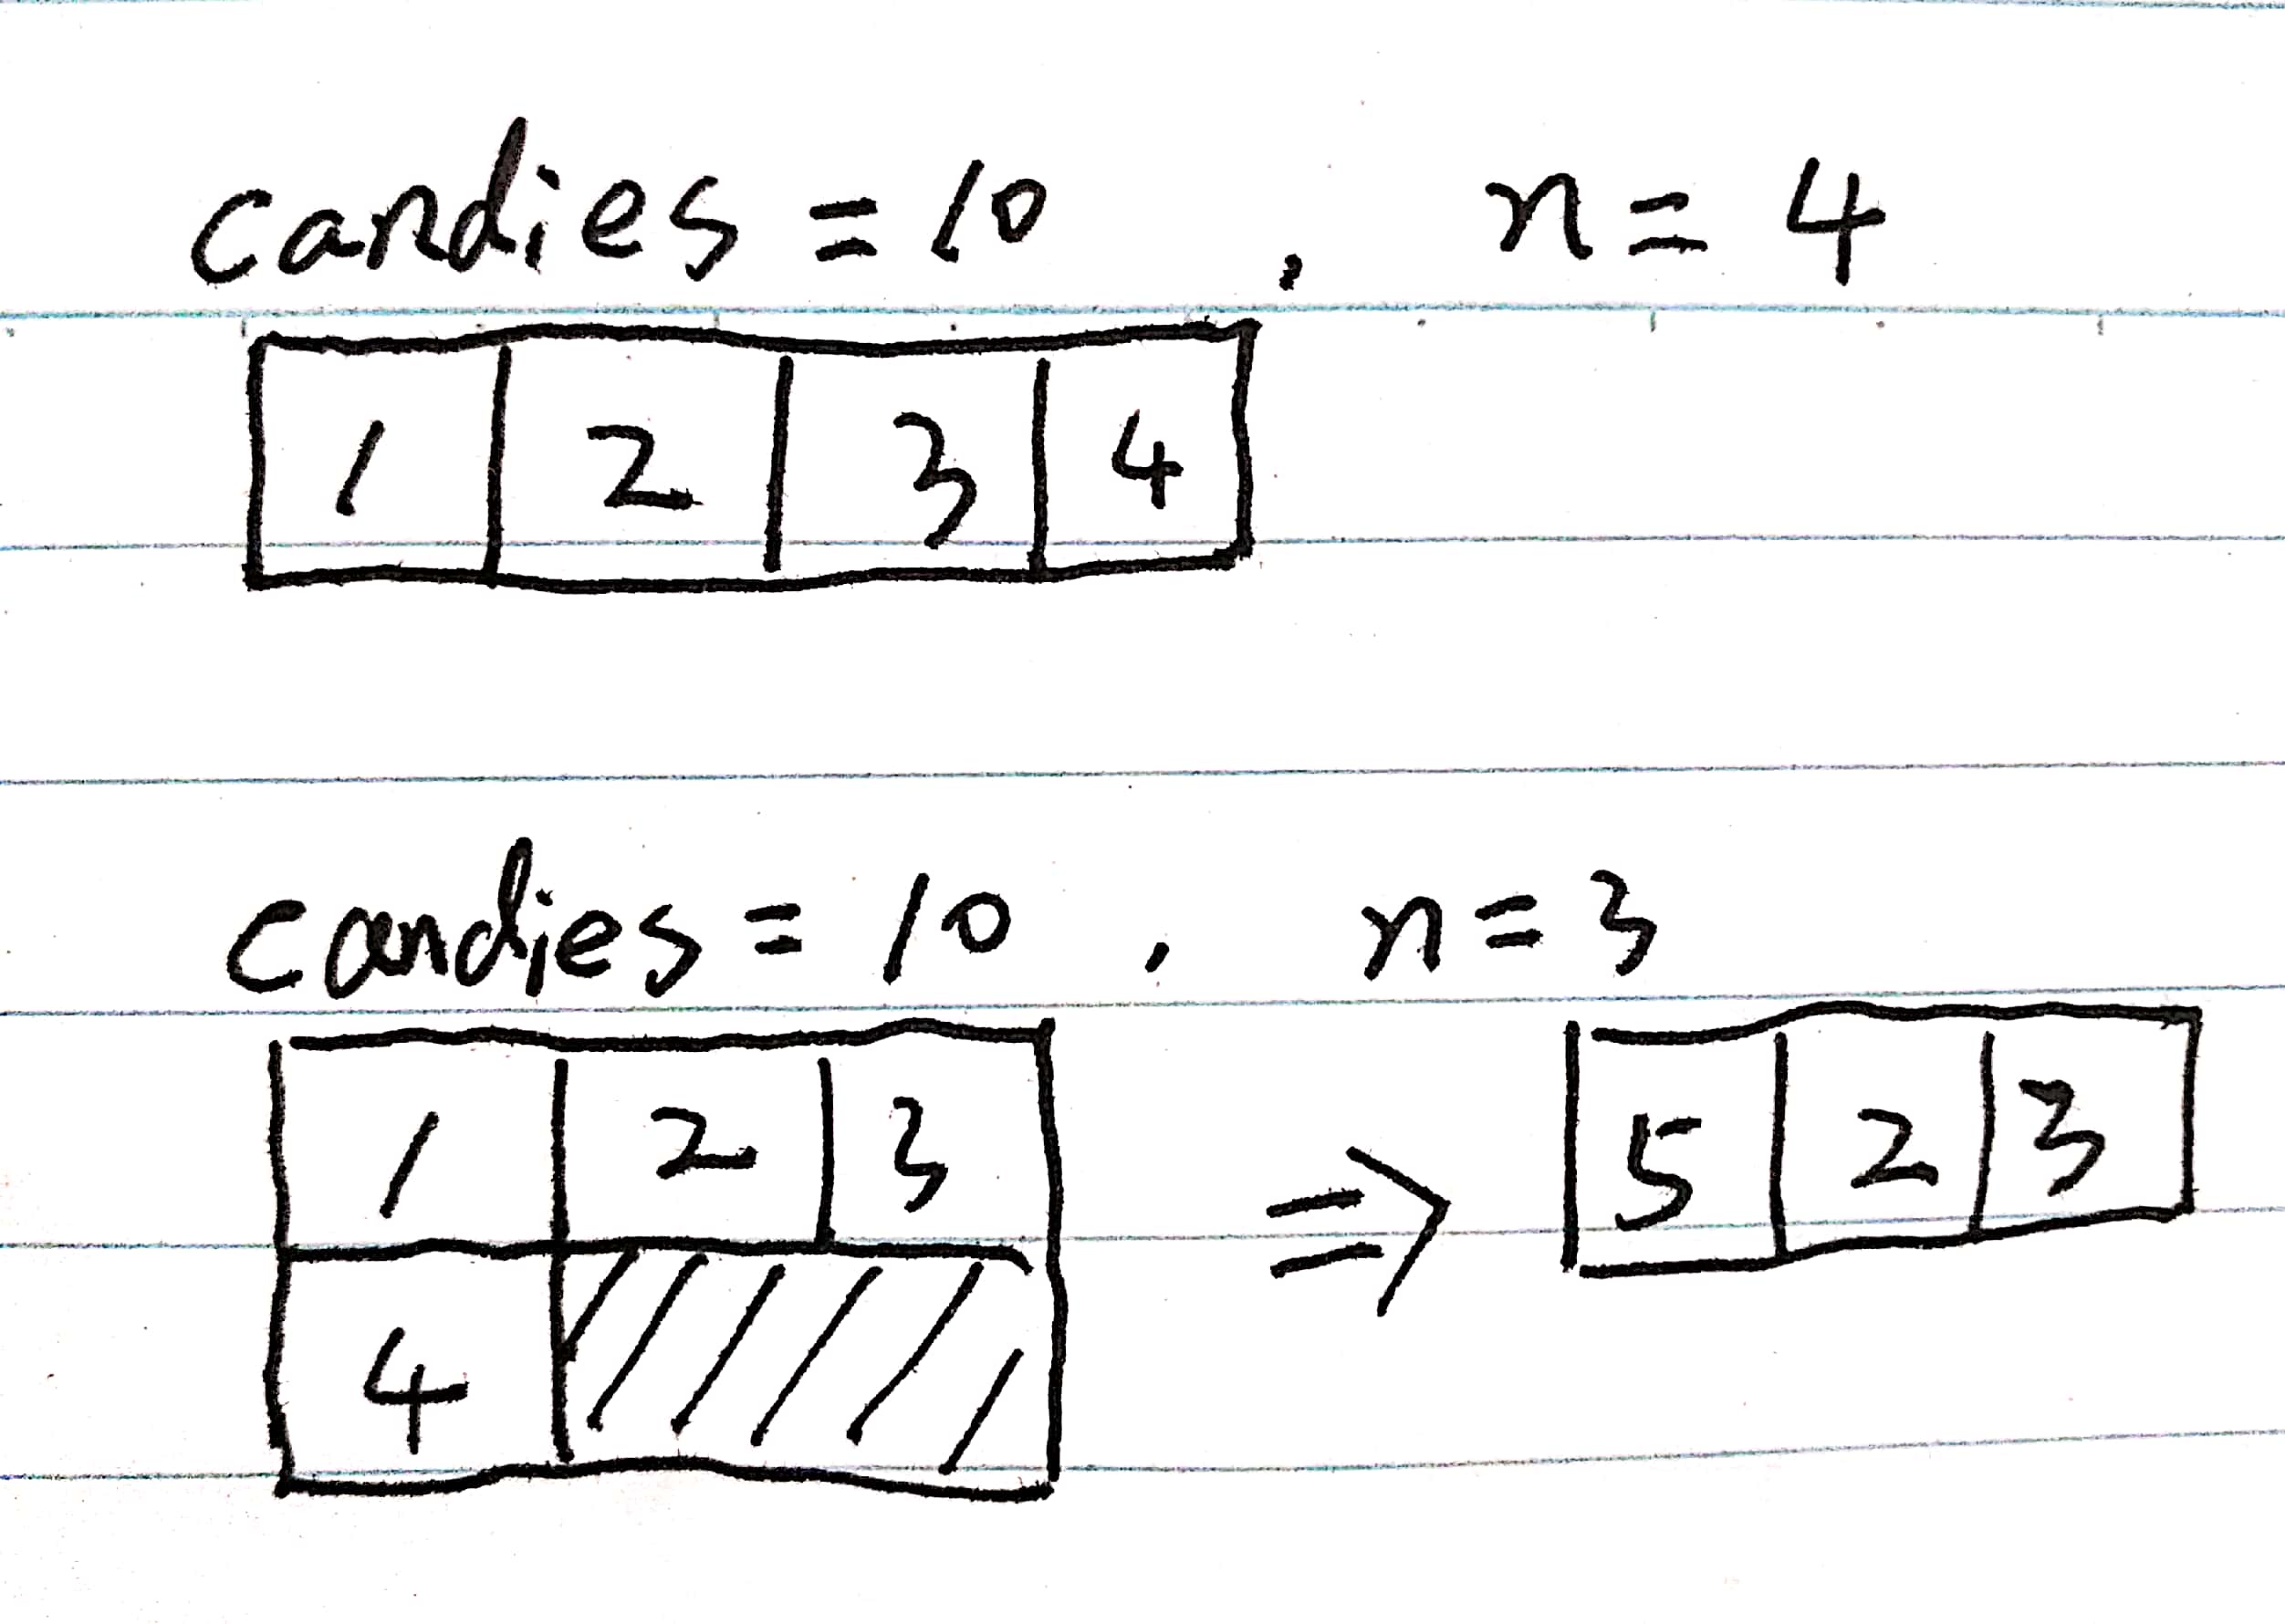 candies = 10 , n = 4
1 2 3 4
candies = 10 , n = 3
1 2 3 ⇒ 5 2 3
4